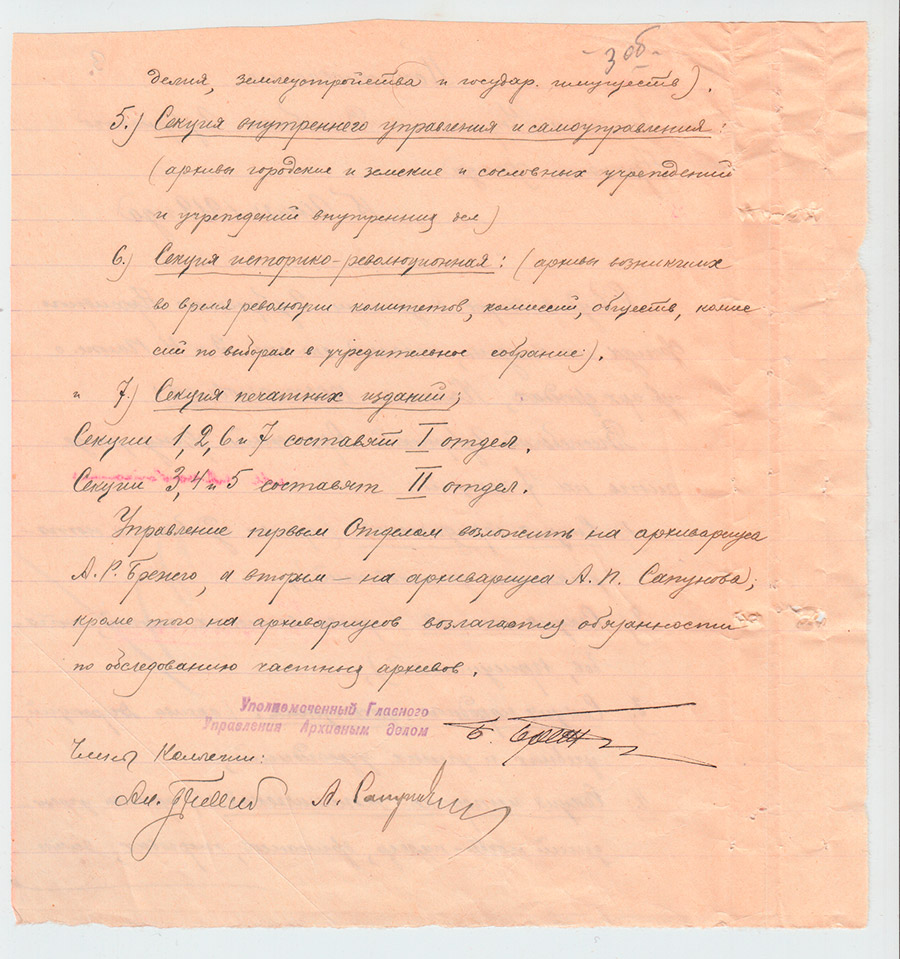 3 об
делия, землеустройства и государ. имуществ).
5.) Секция внутреннего управления и самоуправления:
(архивы городские и земские и сословных учреждений
и учреждений внутренних дел)
6.) Секция историко-революционная: (архивы возникших
во время революции комитетов, комиссий, обществ, комис
сий по выборам в учредительное собрание).
и 7.) Секция печатных изданий;
Секции 1, 2, 6 и 7 составят I отдел.
Секции 3, 4 и 5 составят II отдел.
Управление первым Отделом возложить на архивариуса
А. Р. Бренго, а вторым — на архивариуса А. П. Сапунова;
кроме того на архивариусов возлагаются обязанности
по обследованию частных архивов.
Уполномоченный Главного
Управления Архивным делом
Б. Бреж
Члены Коллегии:
Ал. А. Сапунов